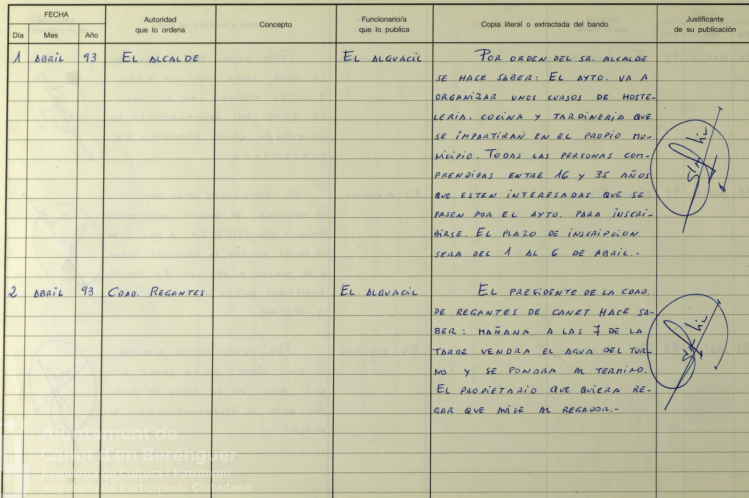 FECHA
Día Mes Año
Autoridad
que lo ordena
Concepto
Funcionario/a
que lo publica
Copia literal o extractada del bando
Justificante
de su publicación
1 ABRIL 93 EL ALCALDE EL ALGUACIL POR ORDEN DEL SR. ALCALDE
SE HACE SABER: EL AYTO. VA A
ORGANIZAR UNOS CURSOS DE HOSTE-
LERIA. COCINA Y JARDINERIA QUE
SE IMPARTIRAN EN EL PROPIO MU-
NICIPIO. TODAS LAS PERSONAS COM-
PRENDIDAS ENTRE 16 Y 35 AÑOS
QUE ESTEN INTERESADAS QUE SE
PASEN POR EL AYTO. PARA INSCRI-
BIRSE. EL PLAZO DE INSCRIPCION
SERA DEL 1 AL 6 DE ABRIL.-
2 ABRIL 93 CDAD. REGANTES EL ALGUACIL EL PRESIDENTE DE LA CDAD.
DE REGANTES DE CANET HACE SA-
BER: MAÑANA A LAS 7 DE LA
TARDE VENDRA EL AGUA DEL TUR-
NO Y SE PONDRA AL TERMINO.
EL PROPIETARIO QUE QUIERA RE-
GAR QUE AVISE AL REGADOR.-
Ajuntament de
Canet d'en Berenguer
Regidoria de Cultura i Patrimoni
Regidoria de Participació Ciutadana